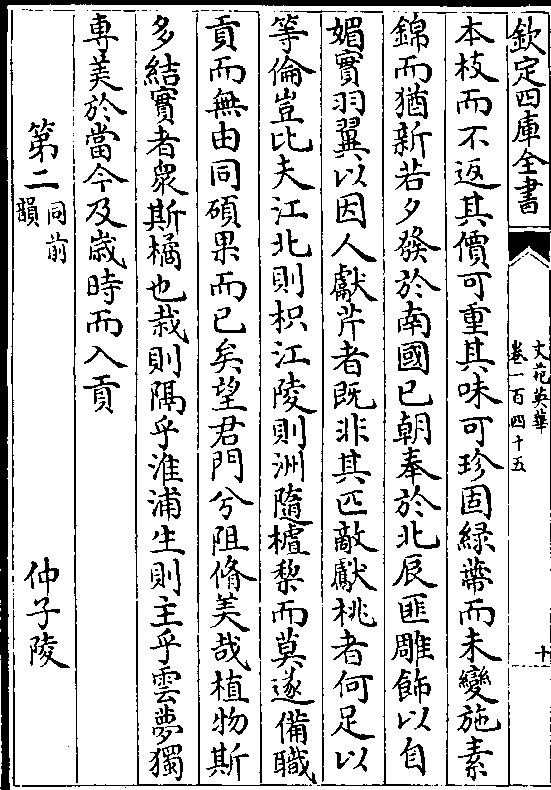 欽定四庫全書
文苑英華
卷一百四十五
十
本枝而不返其價可重其味可珍固緑蔕而未變施素
錦而猶新若夕發於南國已朝奉於北辰匪雕飾以自
媚實羽翼以因人獻芹者既非其匹敵獻桃者何足以
等倫豈比夫江北則枳江陵則洲隨櫨棃而莫遂備職
貢而無由同碩果而已矣望君門兮阻脩美哉植物斯
多結實者衆斯橘也栽則隅乎淮浦生則主乎雲夢獨
專美於當今及歳時而入貢
第二同前韻
仲子陵